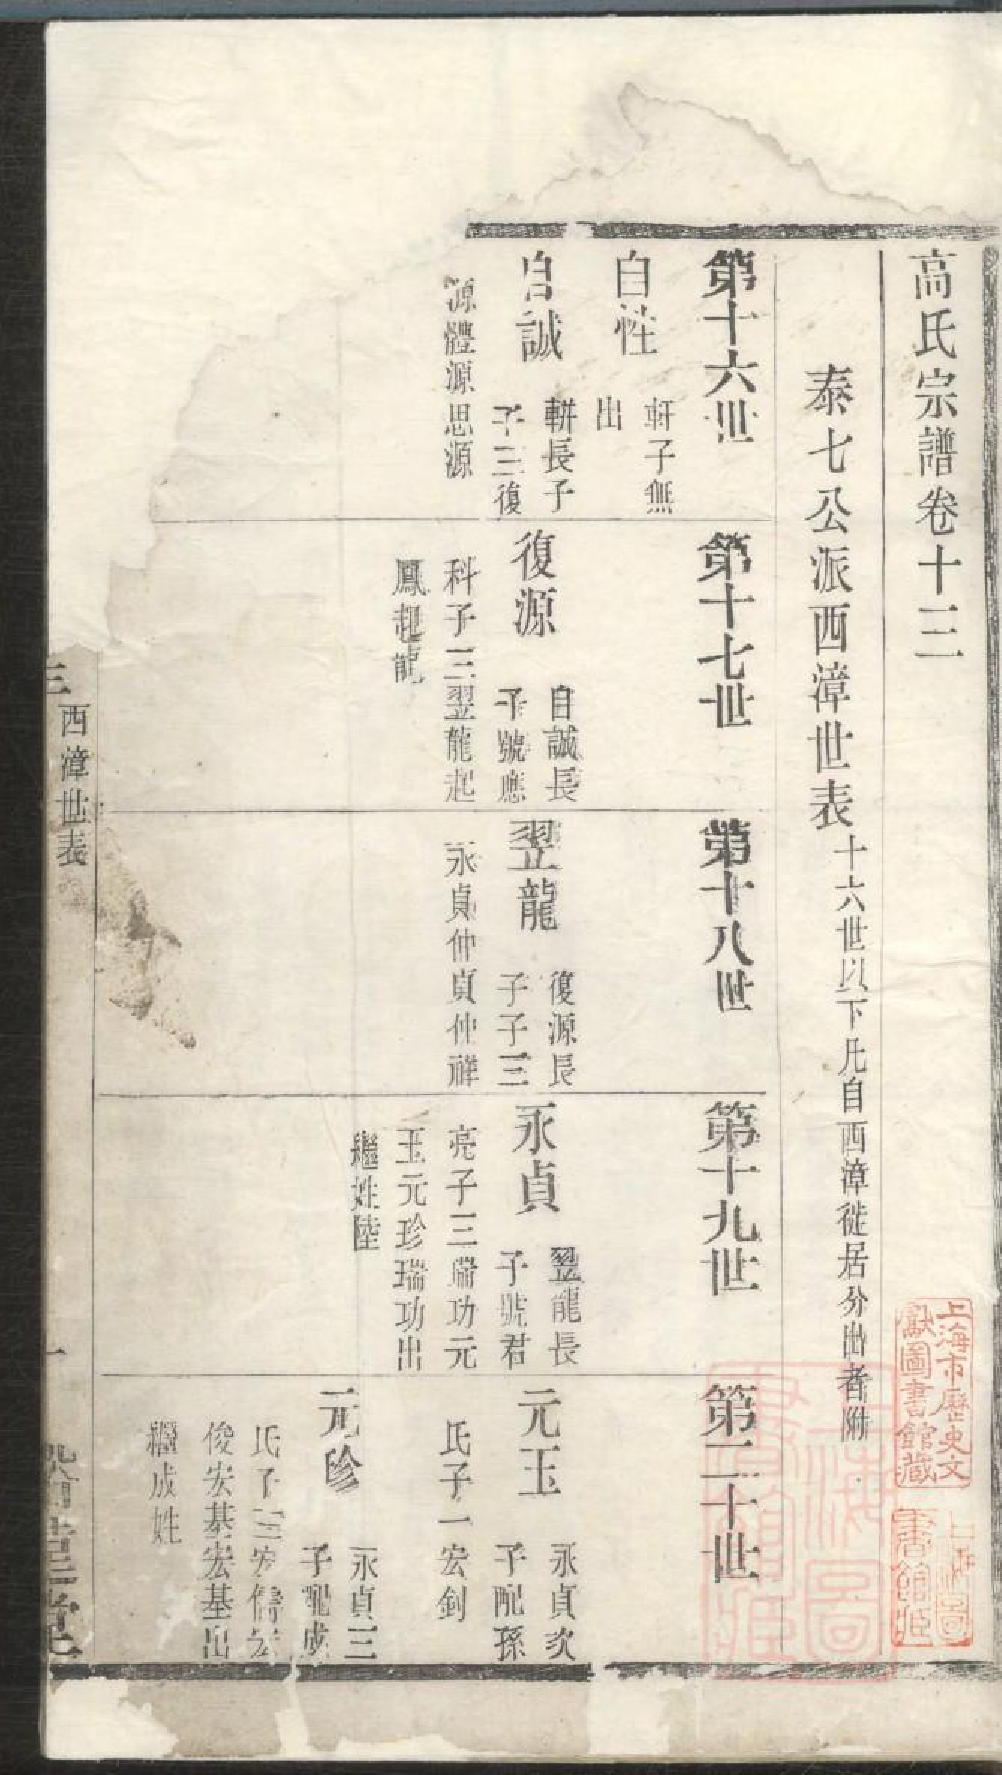 高氏宗譜卷十三
泰七公派西漳世表十六世以下凡自西漳徙居分出者附
第十六世
自性
軒子無
出
自誠
軿長子
子三復
源體源思源
第十七世
復源
自誠長
子號應
科子三翌龍起
鳳起龍
第十八世
翌龍
復源長
子子三
永貞仲貞仲祥
第十九世
永貞
翌龍長
子號君
亮子三瑞功元
玉元珍瑞功出
繼姓陸
第二十世
元玉
永貞次
子配孫
氏子一宏釗
元珍
永貞三
子配成
氏子三宏儒宏
俊宏基宏基出
繼成姓
西漳世表
一
堂
上海市歷史文
獻圖書館藏
上海圖
書館藏